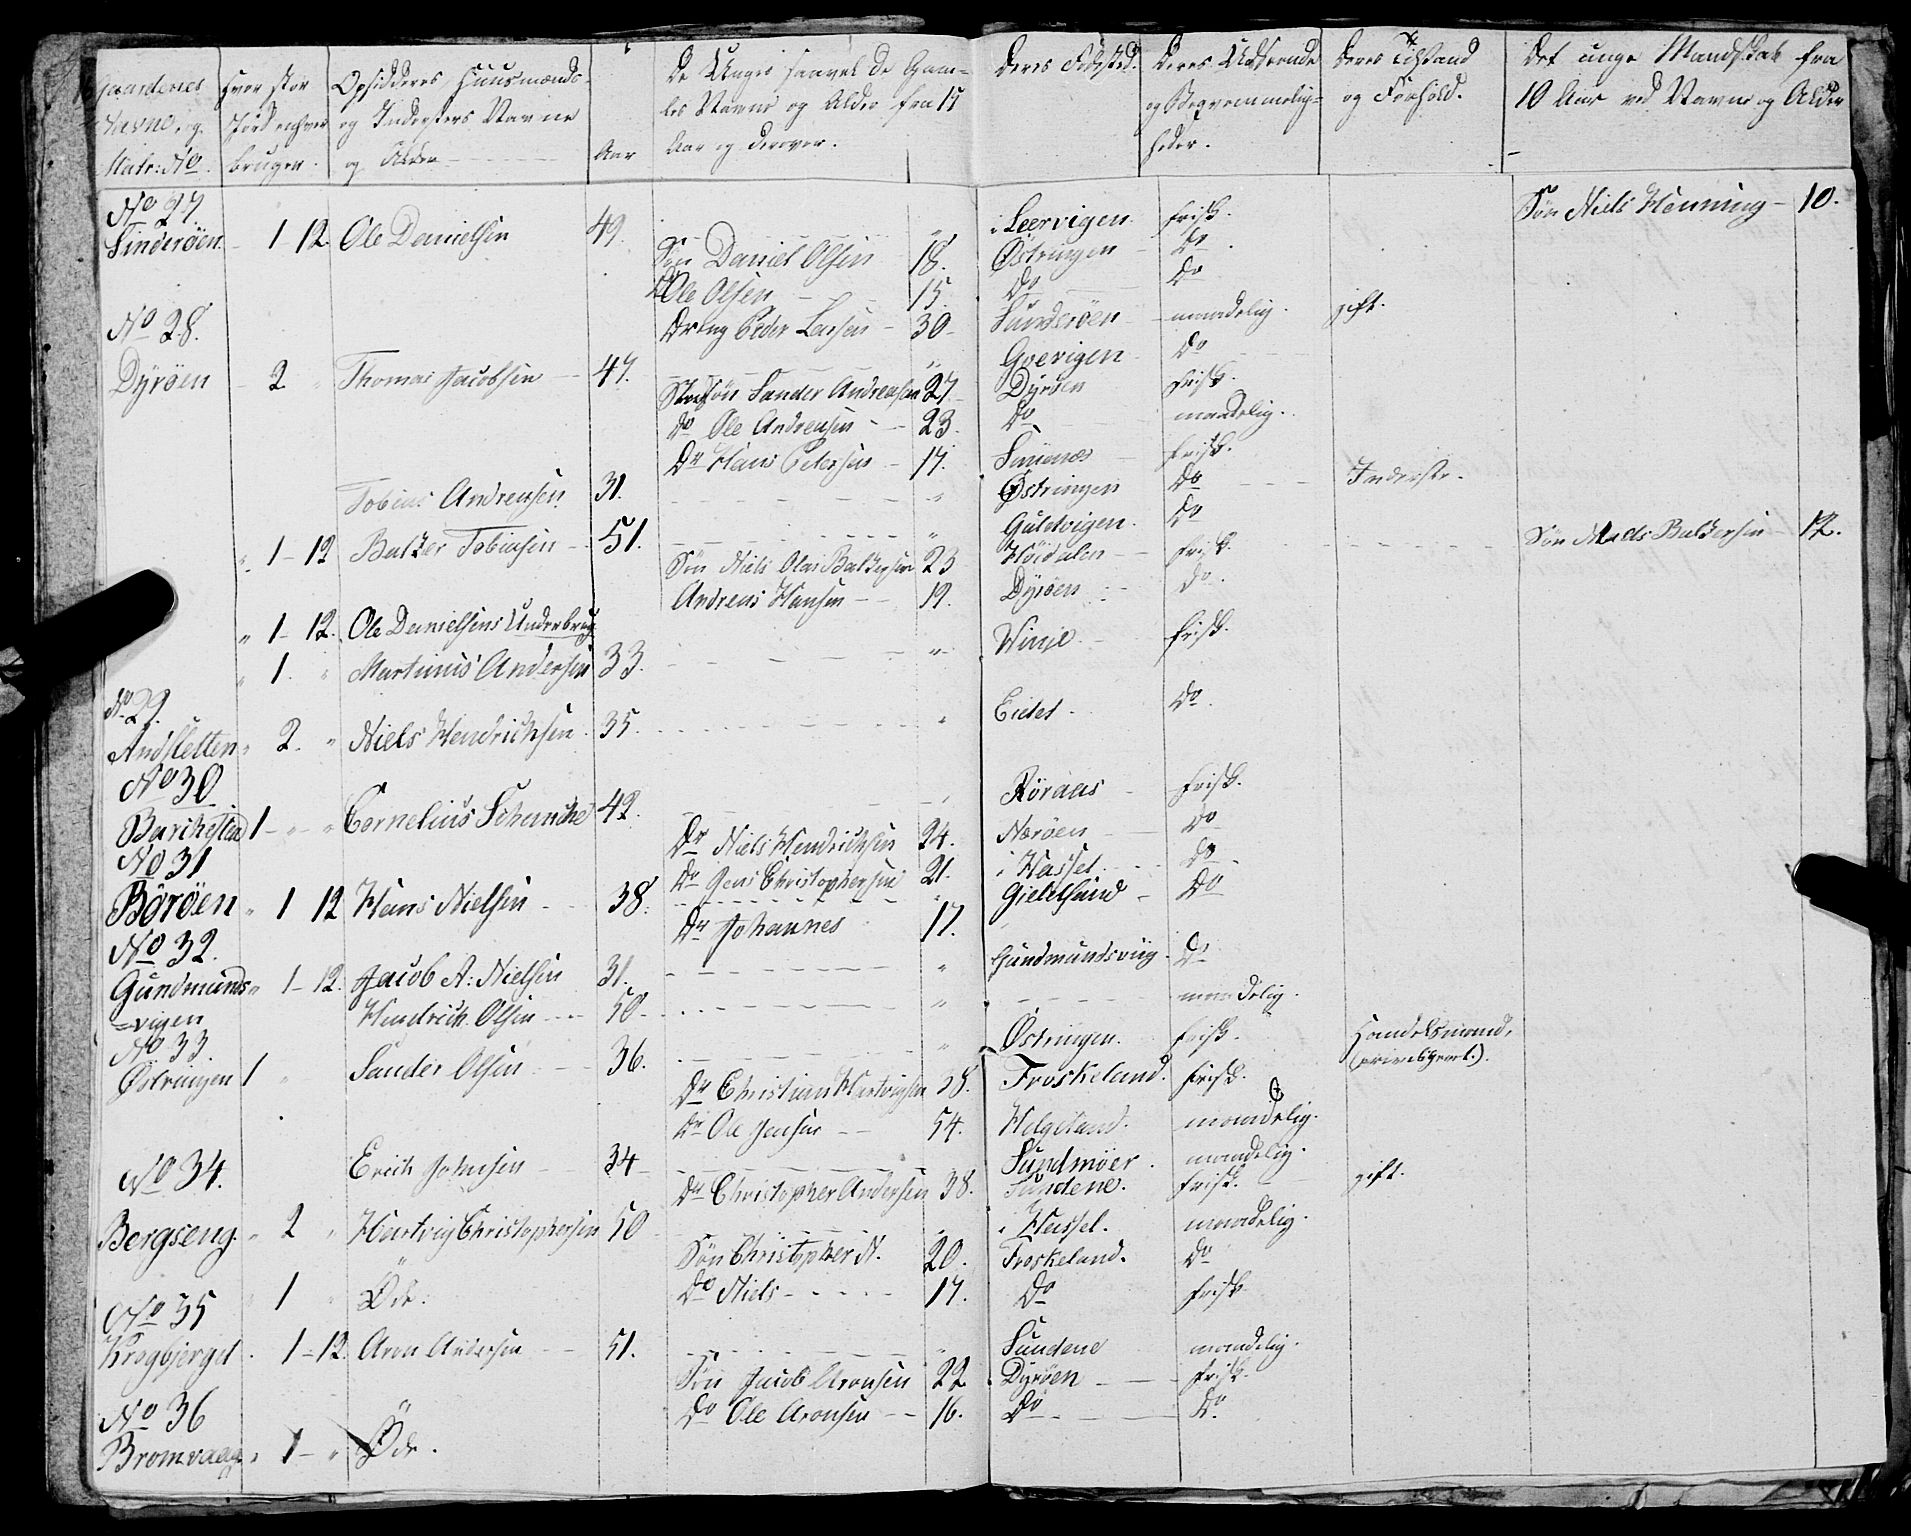 Gaardenes Navne, og Matr: No.
Hvor stor Jord enhver bruger.
Opsidderes Huusmænds og Indersters Navne og Alder
Aar
De Unges saavel de Gamles Navne og Alder fra 15 Aar og derover.
Deres Fødested.
Deres Udseende og Beqvemmeligheder.
Deres Tilstand og Forhold.
Det unge Mandskab fra 10 Aar ved Navne og Alder
No 27. Søn Niels Henning 10.
Sinderöen 1-12. Ole Danielsen 49. i Leervigen frisk.
Søn Daniel Olsen 18. Östringen Do.
Do Ole Olsen 15. Do Do
No 28. Dreng Peder Larsen 30 Sunderöen maadelig. gift.
Dÿröen 2 " Thomas Jacobsen 47. " Do
Stedsøn Sander Andreasen 27 Dyröen frisk.
Do Ole Andreasen 23. Do maadelig.
Dr Hans Petersen 17. frisk.
Tobias Andreasen 31. " Östringen Do Inderste.
" 1-12 Balzer Tobiasen 51. " Guldvigen. Do Søn Mads Baltzersen 12.
Søn Niels Olai Baltzersen 23 Höidalen frisk.
Andreas Hansen 19. Dyröen Do.
" 1-12. Ole Danielsens Underbrug
" 1. " Martinus Andersen 33. " Winje frisk.
No 29.
Andsletten " 2. " Niels Hendrichsen 35. " Eidet. Do.
No 30
1 - " " Cornelius Schunche 42. " Röraas frisk.
Dr Niels Hendrichsen 24. Næröen Do
No 31 Do Jens Christophersen 21. i Hassel Do.
Böröen " 1 12 Hans Nielsen 38. Do
Dr Johannes 17.
No 32.
Gundmunds " 1-12. Jacob A: Nielsen 31. " Gundmundsviig. Do
=vigen Hendrich Olsen 50. " maadelig.
No 33.
Östringen 1 " Sander Olsen 36. " Östringen. frisk. Handelsmand, (priviligeret.).
Dr Christian Hartvigsen 38. Froskeland. frisk.
Dr Ole Jensen 54. Helgeland. maadelig.
No 34. Erich Johnsen 34 Sundmöer. maadelig.
Dr Christopher Andersen 38. Sundene. frisk. gift.
Bergseng. " 2 " Hartvig Christophersen 50 i Hassel. maadelig.
Søn Christopher H. 20. Froskeland. Do
" 1 " Öde. Do Niels 17. Do frisk
No 35
Krogbjerget. 1-12. Aron Andersen 51. " Sundene maadelig.
Søn Jacob Aronsen 22 Dyröen frisk.
No 36 Do Ole Aronsen 16. Do. Do.
Bromvaag " 1 - " Öde.